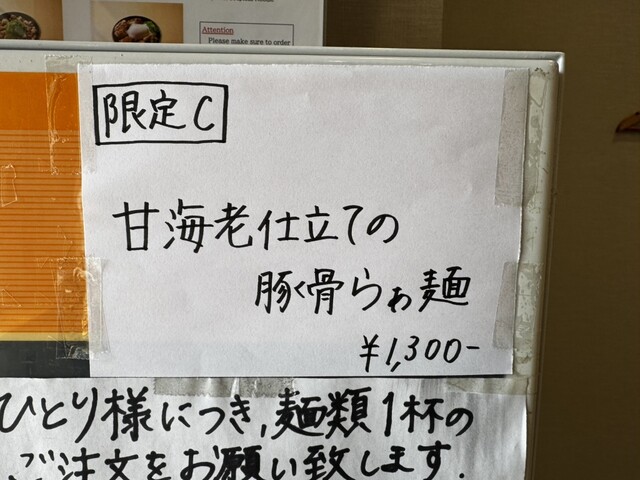 Attention
Please make sure to order
限定C
甘海老仕立ての
豚骨らぁ麺
¥1,300-
ひとり様につき,麺類1杯の
ご注文をお願い致します.